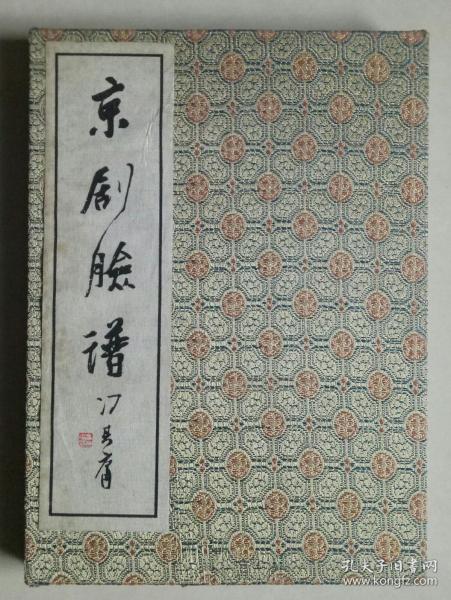 京剧臉谱
冯其庸
孔夫子旧书网
www.kongfz.com